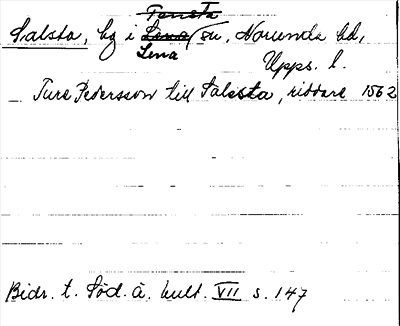 Tensta
Salsta, hg i Lena sn, Norunda hd,
Lena
Upps. l.
Ture Pedersson till Salsta, riddare 1562
Bidr. t. Söd. å. hult. VII s. 147